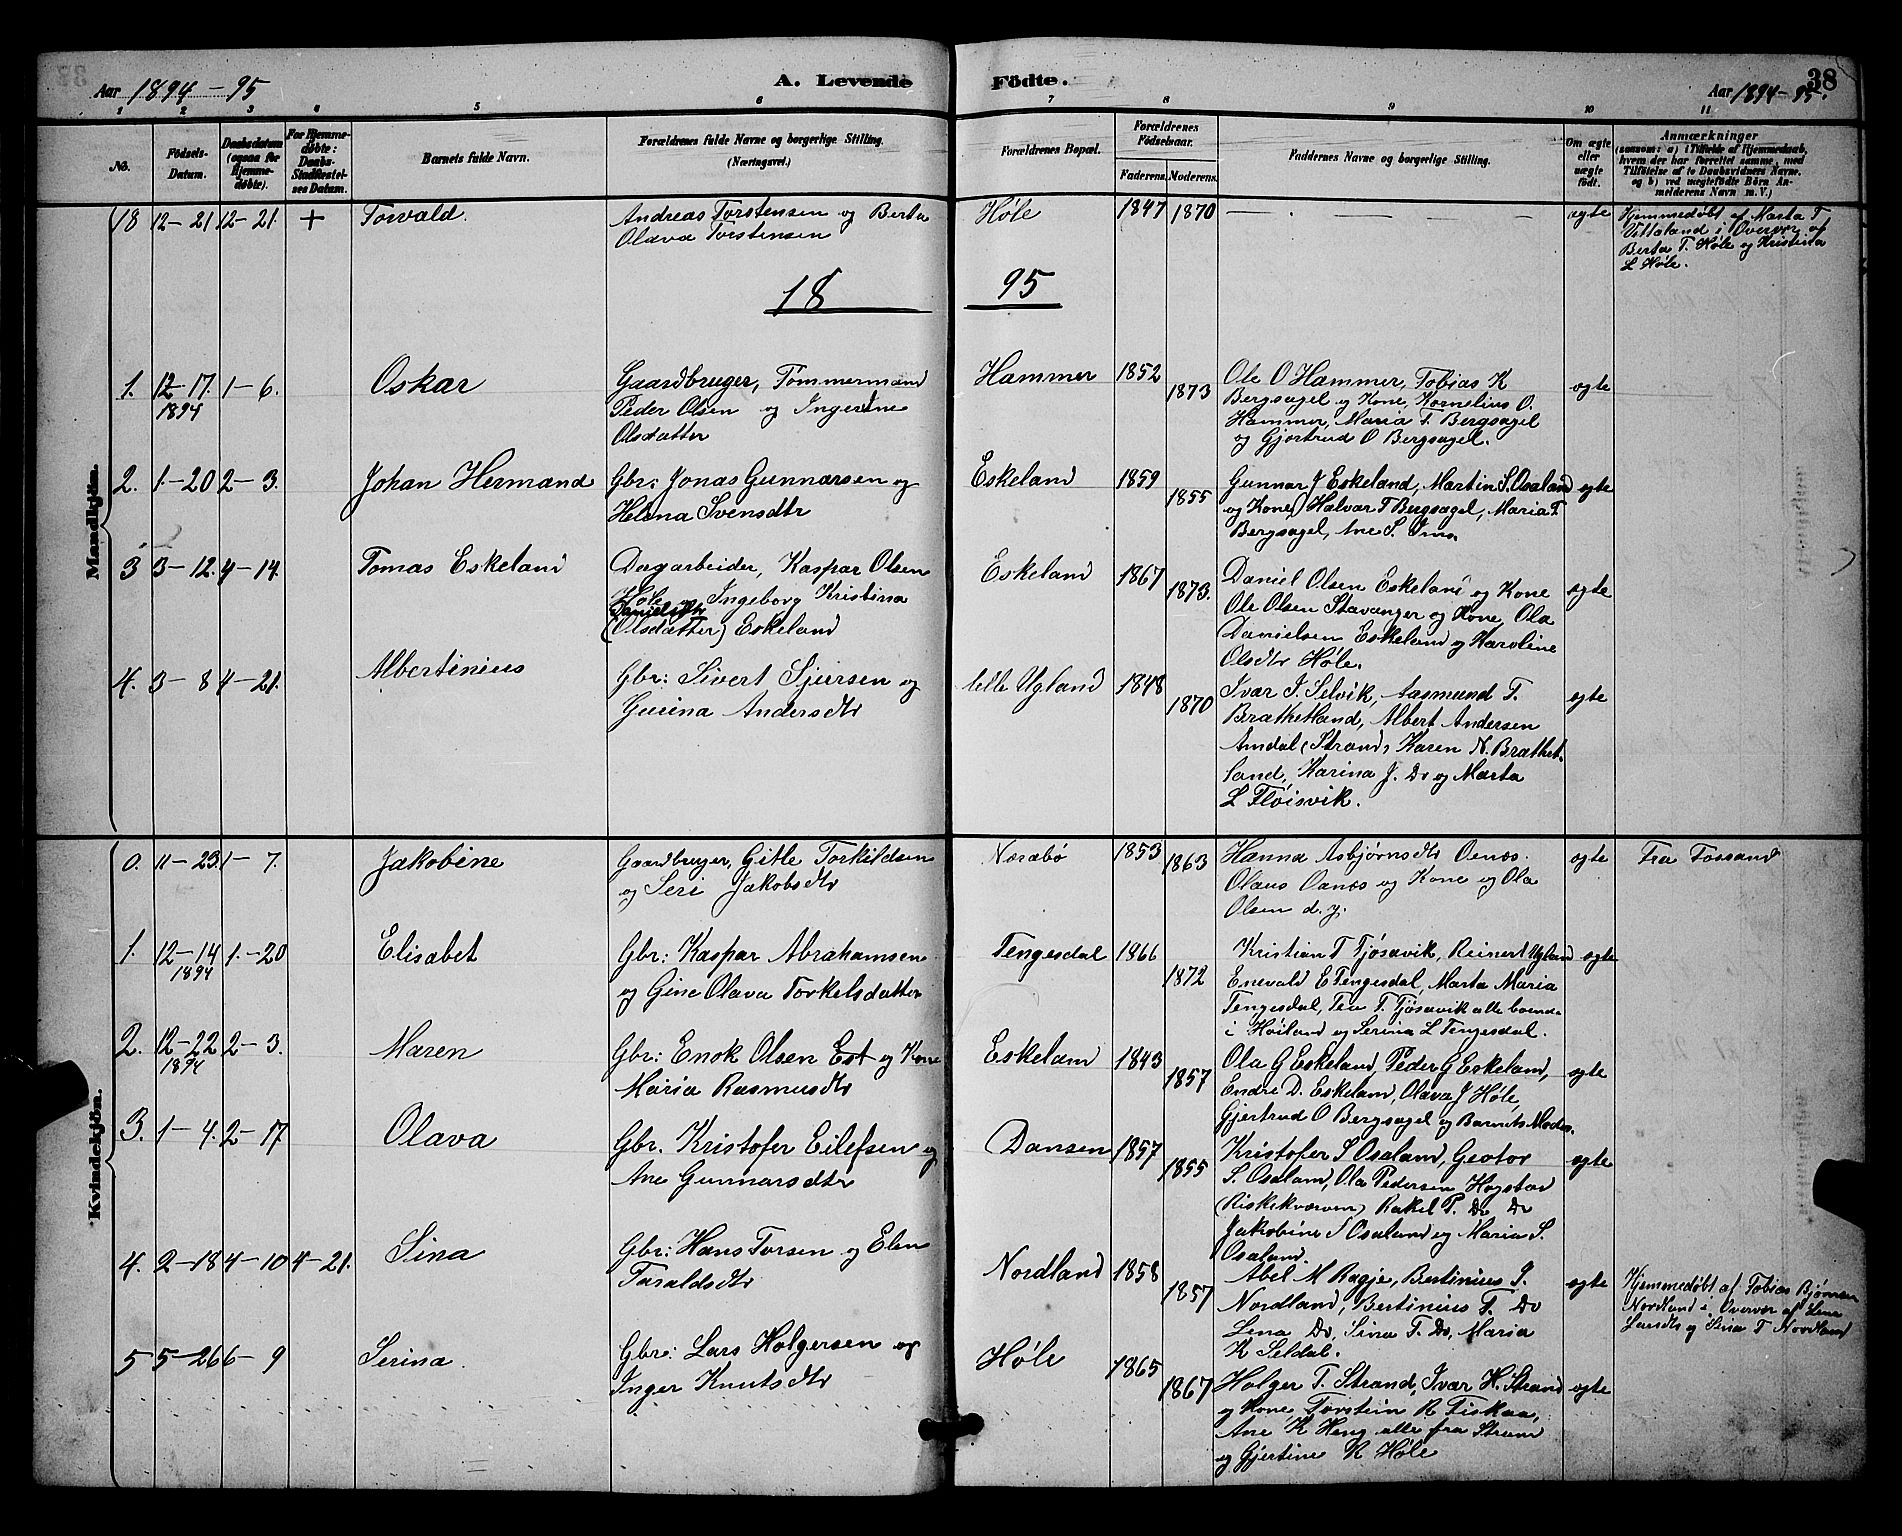 Aar 1894-95
A. Levende
Födte.
Aar 1894-95.
38
1 2 3 4 5 6 7 8 9 10 11
No.
Födsels-Datum.
Daabsdatum (ogsaa for Hjemmedøbte).
For Hjemmedøbte: Daabs-Stadfæstelses Datum.
Barnets fulde Navn.
Forældrenes fulde Navne og borgerlige Stilling.
(Næringsvei.)
Forældrenes Bopæl.
Forældrenes Födselsaar.
Faderens. Moderens.
Faddernes Navne og borgerlige Stilling.
Om ægte eller uægte födt.
Anmærkninger
(saasom: a) i Tilfælde af Hjemmedaab, hvem der har forrettet samme, med Tilføielse af to Daabsvidners Navne. og b) ved uægtefødte Börn Anmelderens Navn m. V.)
Mandkjön.
18 12-21 12-21. + Torvald.
Andreas Torstensen og Berta
Olava Torstensen
Høle 1847 1870 — — — — ægte
Hjemmedøbt af Marta T.
Vittaland i Overvær af
Berta T. Høle og Kristina
L Høle.
18 95
1. 12-17. 1-6. Oskar
1894
Gaardbruger, Tømmermand
Peder Olsen og Ingerine
Olsdatter
Hammer 1852 1873
Ole O Hammer, Tobias K
Bergsagel og Kone, Kornelius O.
Hammer, Maria T. Bergsagel
og Gjertrud O Bergsagel.
ægte
2. 1-20 2-3. Johan Hermand
Gbr: Jonas Gunnarsen og
Helena Svensdtr
Eskeland 1859 1855
Gunnar J Eskeland, Martin S. Osaland
og Kone, Halvar T Bergsagel, Maria T.
Bergsagel, Ane S.
ægte
3 3-12. 4-14. Tomas Eskeland
Dagarbeider, Kaspar Olsen
Høle og Ingeborg Kristina
Danielsdtr
(Olsdatter) Eskeland
Eskeland 1867 1873.
Daniel Olsen Eskeland og Kone
Ole Olsen Stavanger og Kone, Ola
Danielsen Eskeland og Karoline
Olsdtr Høle.
ægte
4. 3-8 4-21. Albertinius
Gbr: Sivert Sjursen og
Gurina Andersdtr
lille Ugland 1848 1870
Ivar I. Selvik, Aasmund T.
Brathetland, Albert Andersen
Amdal (Strand), Karen N. Brathet-
land, Karina J. Do og Marta
L Fløisvik.
ægte
Kvindekjön.
0. 11-23. 1-7. Jakobine
Gaardbruger, Gitle Torkildsen
og Seri Jakobsdtr
Næsabø 1853 1863
Hanna Asbjørnsdtr Oenæs.
Olaus Oanæs og Kone og Ola
Olsen d. y.
ægte Fra Fossand
1. 12-14 1-20 Elisabet
1894
Gbr: Kaspar Abrahamsen
og Gine Olava Torkelsdatter
Tengesdal 1866 1872
Kristian T Tjøsavik, Reinert Ugland
Enevald E Tengesdal, Marta Maria
Tengesdal, Tea T. Tjøsavik alle boende
i Høiland og Serina L Tengesdal.
ægte
2. 12-22 2-3. Maren
1894
Gbr: Enok Olsen Est og Kone
Maria Rasmusdtr
Eskeland 1843 1857
Ola G Eskeland, Peder G Eskeland,
Endre D. Eskeland, Olava J Høle,
Gjertrud O Bergsagel og Barnets Moder.
ægte
3. 1-4. 2-17 Olava
Gbr. Kristofer Eilefsen og
Ane Gunnarsdtr
Dansen 1857 1855
Kristofer S Osaland, Geotor
S. Osaland, Ola Pedersen Hogstad
(Riskekværven) Rakel P. Do Do
Jakobine S Osaland og Maria S.
Osaland.
ægte
4. 2-18 4-10 4-21. Sina
Gbr: Hans Torsen og Elen
Taraldsdtr
Nordland 1858 1857
Abel M Ragje, Bertinius P.
Nordland, Bertinius T. Do
Lena Do, Sina T. Do, Maria
K Seldal.
ægte
Hjemmedøbt af Tobias Bjørnsen
Nordland i Overvær af Lena
Larsdtr og Sina T Nordland
5 5-26 6-9 Serina.
Gbr: Lars Holgersen og
Inger Knutsdtr
Høle 1865 1867
Holger T. Strand, Ivar H. Strand
og Kone Torstein R. Fiskaa,
Ane K Heng alle fra Strand
og Gjertine K Høle
ægte